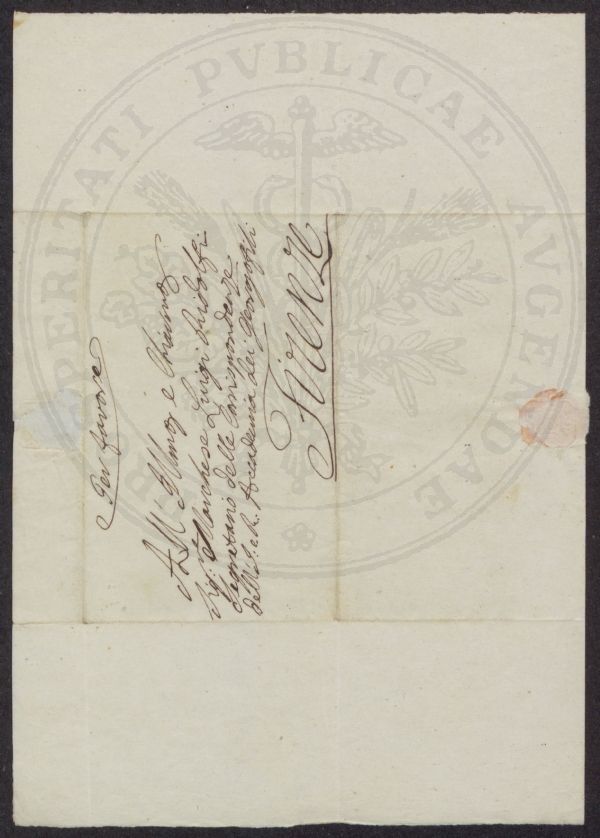 Per favore
All Illmo e Chiarmo
Sig. Marchese Luigi Ridolfi
Segretario delle Corrispondenze
dell'I. e R. Accademia dei Georgofili
Firenze
PROSPERITATI PVBLICAE AVGENDAE